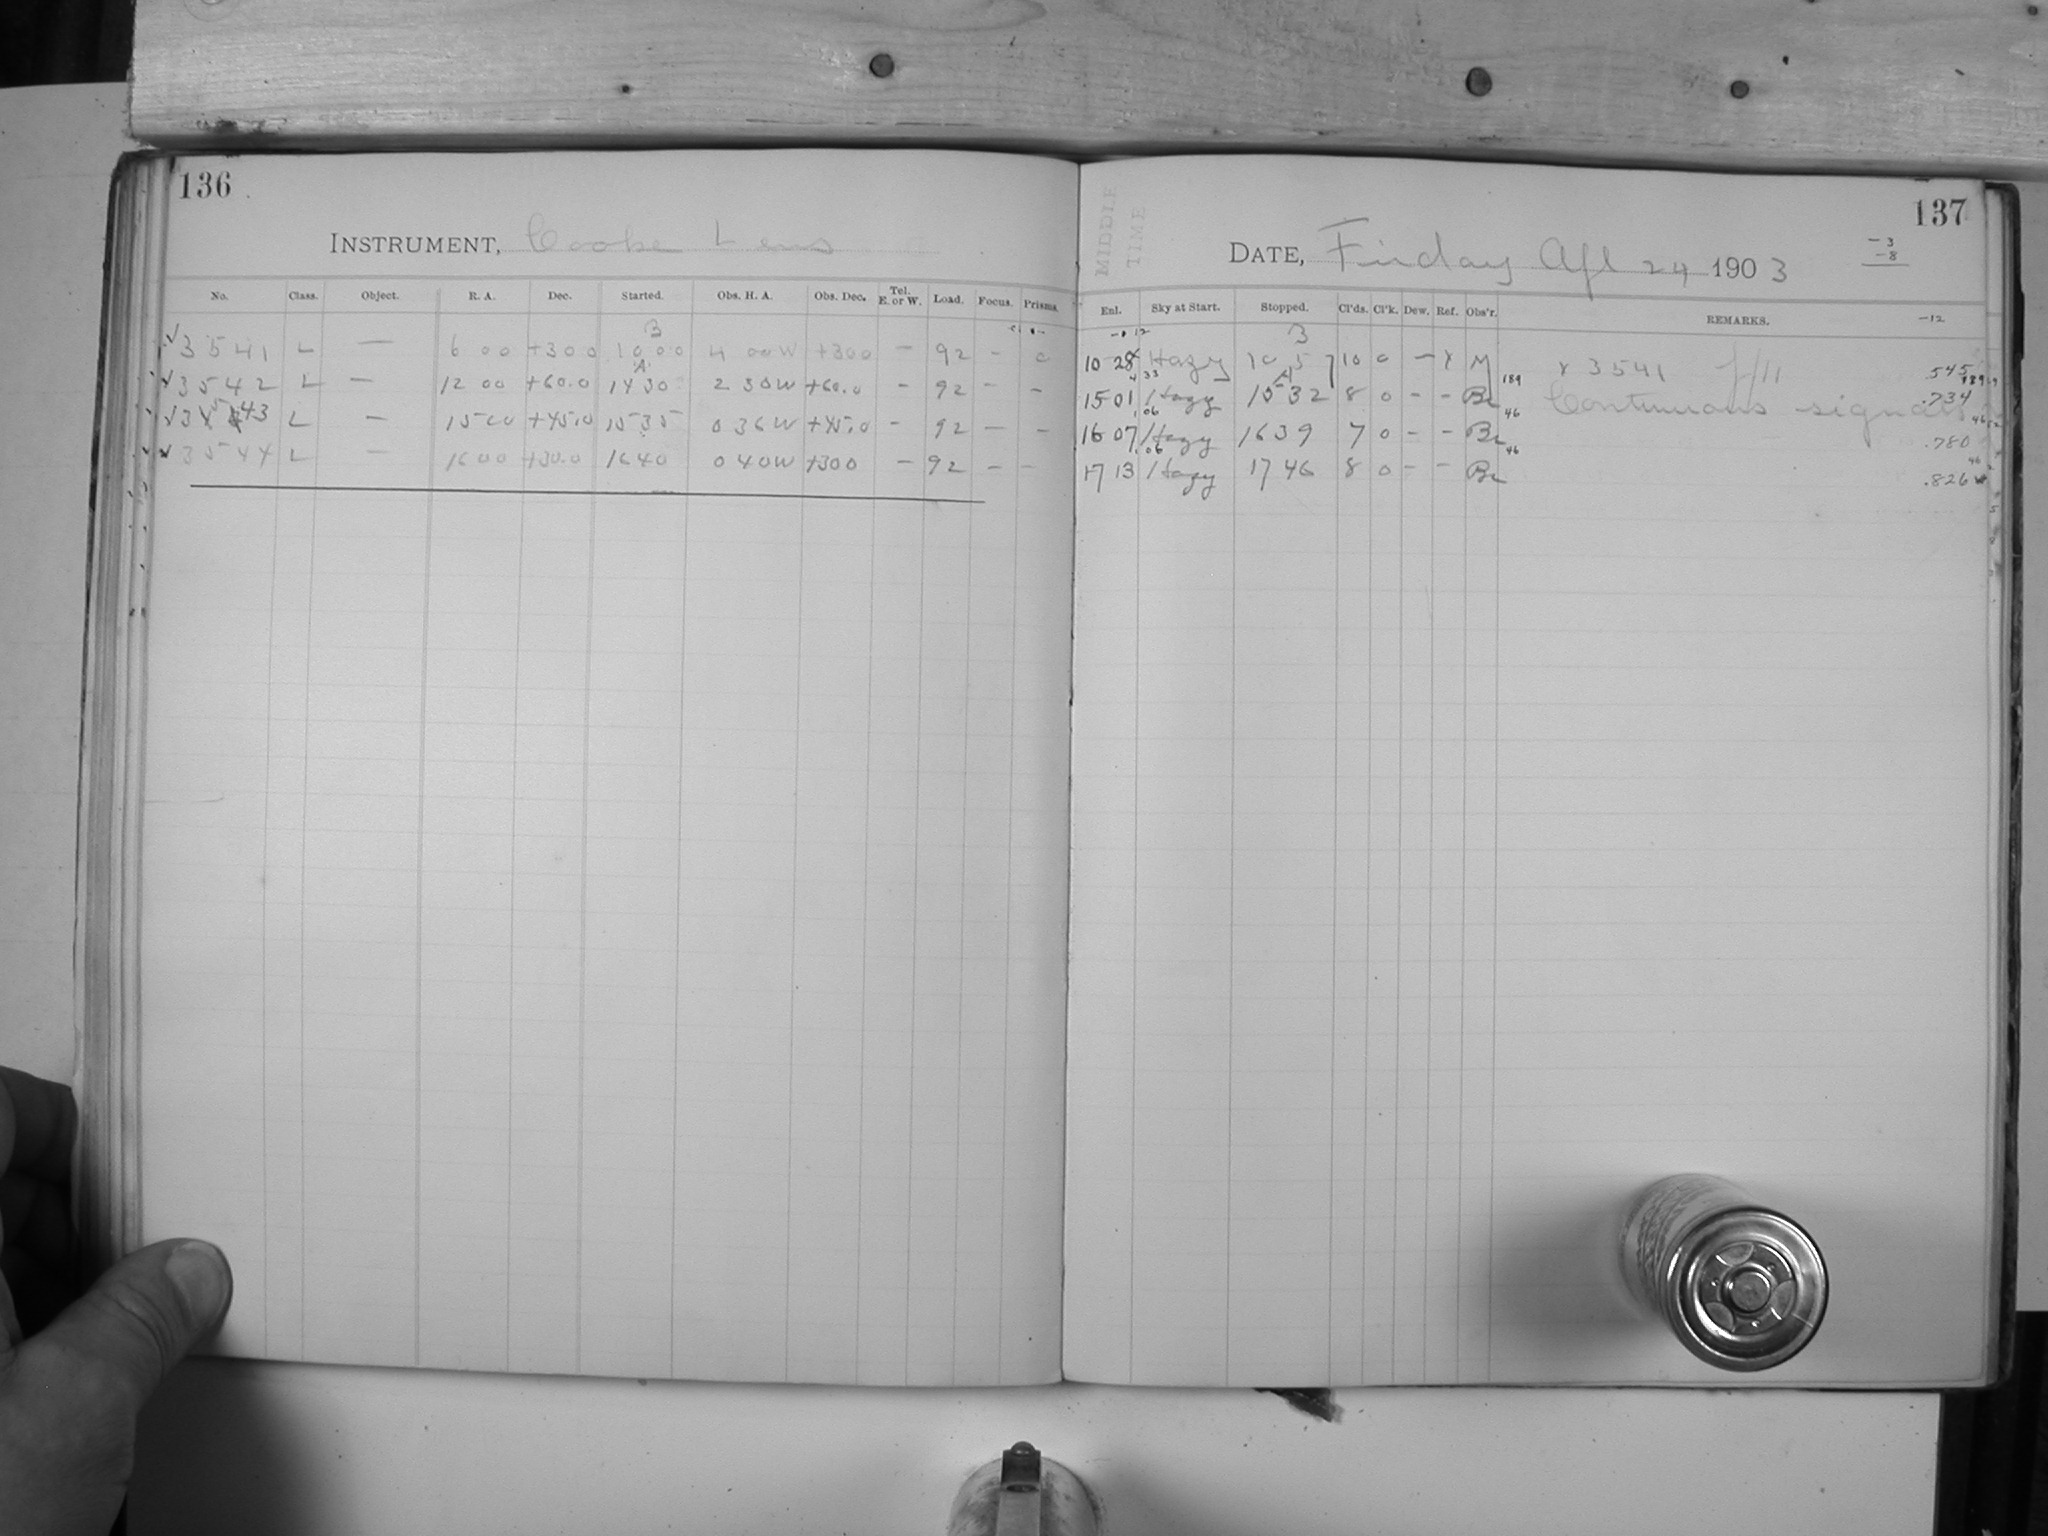 136
INSTRUMENT, Cooke Lens
No. Class. Object. R. A. Dec. Started. Obs. H. A. Obs. Dec. Tel. E. or W. Load. Focus. Prisms.
3
√3541 L — 6 00 +30 0 10 00 4 00W +300 — 92 –
A
√3542 L — 12 00 +60.0 14 30 2 30W +60.0 - 92 - -
43 L — 15 00 +45.0 15 35 0 36W +45.0 - 92 — -
3544 L — 16 00 +30.0 16 40 0 40W +300 — 92 - -
137
MIDDLE TIME
DATE, Friday Apl 24 1903
-3
-8
Enl. Sky at Start. Stopped. Cl'ds. Cl'k. Dew. Ref. Obs'r. REMARKS. -12
3
10 28 Hazy 10 57 10 0 — M x 3541 f/11 .545
A
15 01 Hazy 15 32 8 0 - - Bc 189 Continuous signals .734
16 07 Hazy 16 39 7 0 - - Bc 46 .780
17 13 Hazy 17 46 8 0 - - Bc 46 .826